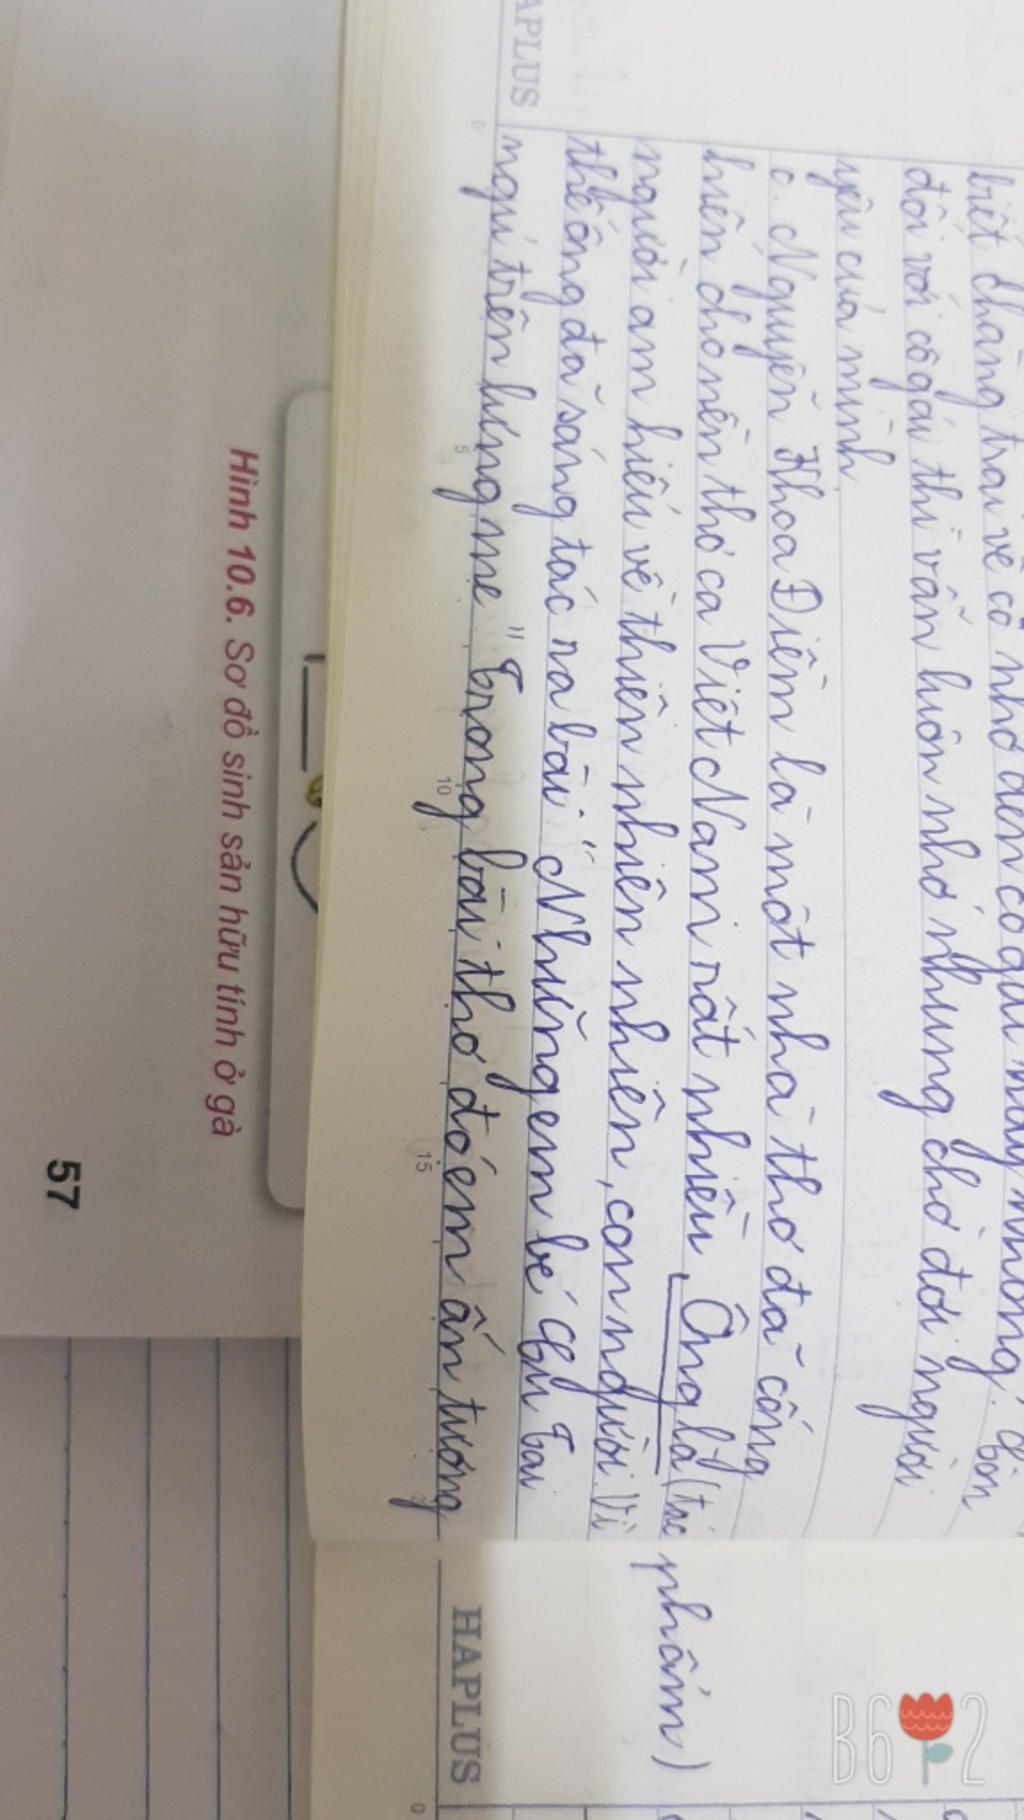 biết chàng trai về có nhớ đến cô gái này không. Còn
đối với cô gái thì vẫn luôn nhớ nhung chờ đợi người
yêu của mình
c. Nguyễn Khoa Điềm là một nhà thơ đã cống
hiến cho nền thơ ca Việt Nam rất nhiều. Ông là (tác phẩm)
người am hiểu về thiên nhiên nhiên, con người. Vì
thế ông đã sáng tác ra bài "Những em bé Cu Tai
ngủ trên lưng mẹ" Trong bài thơ đó em ấn tượng
APLUS
0
5
10
15
HAPLUS
0
Hình 10.6. Sơ đồ sinh sản hữu tính ở gà
57
B6 2